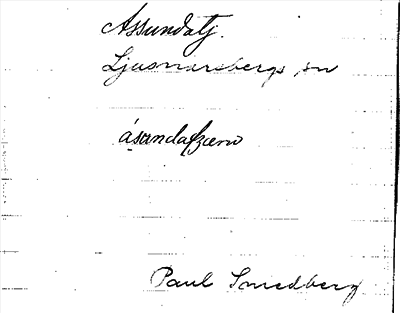 Assundatj.
Ljusnarsbergs sn
åsundafzæno
Paul Smedberg